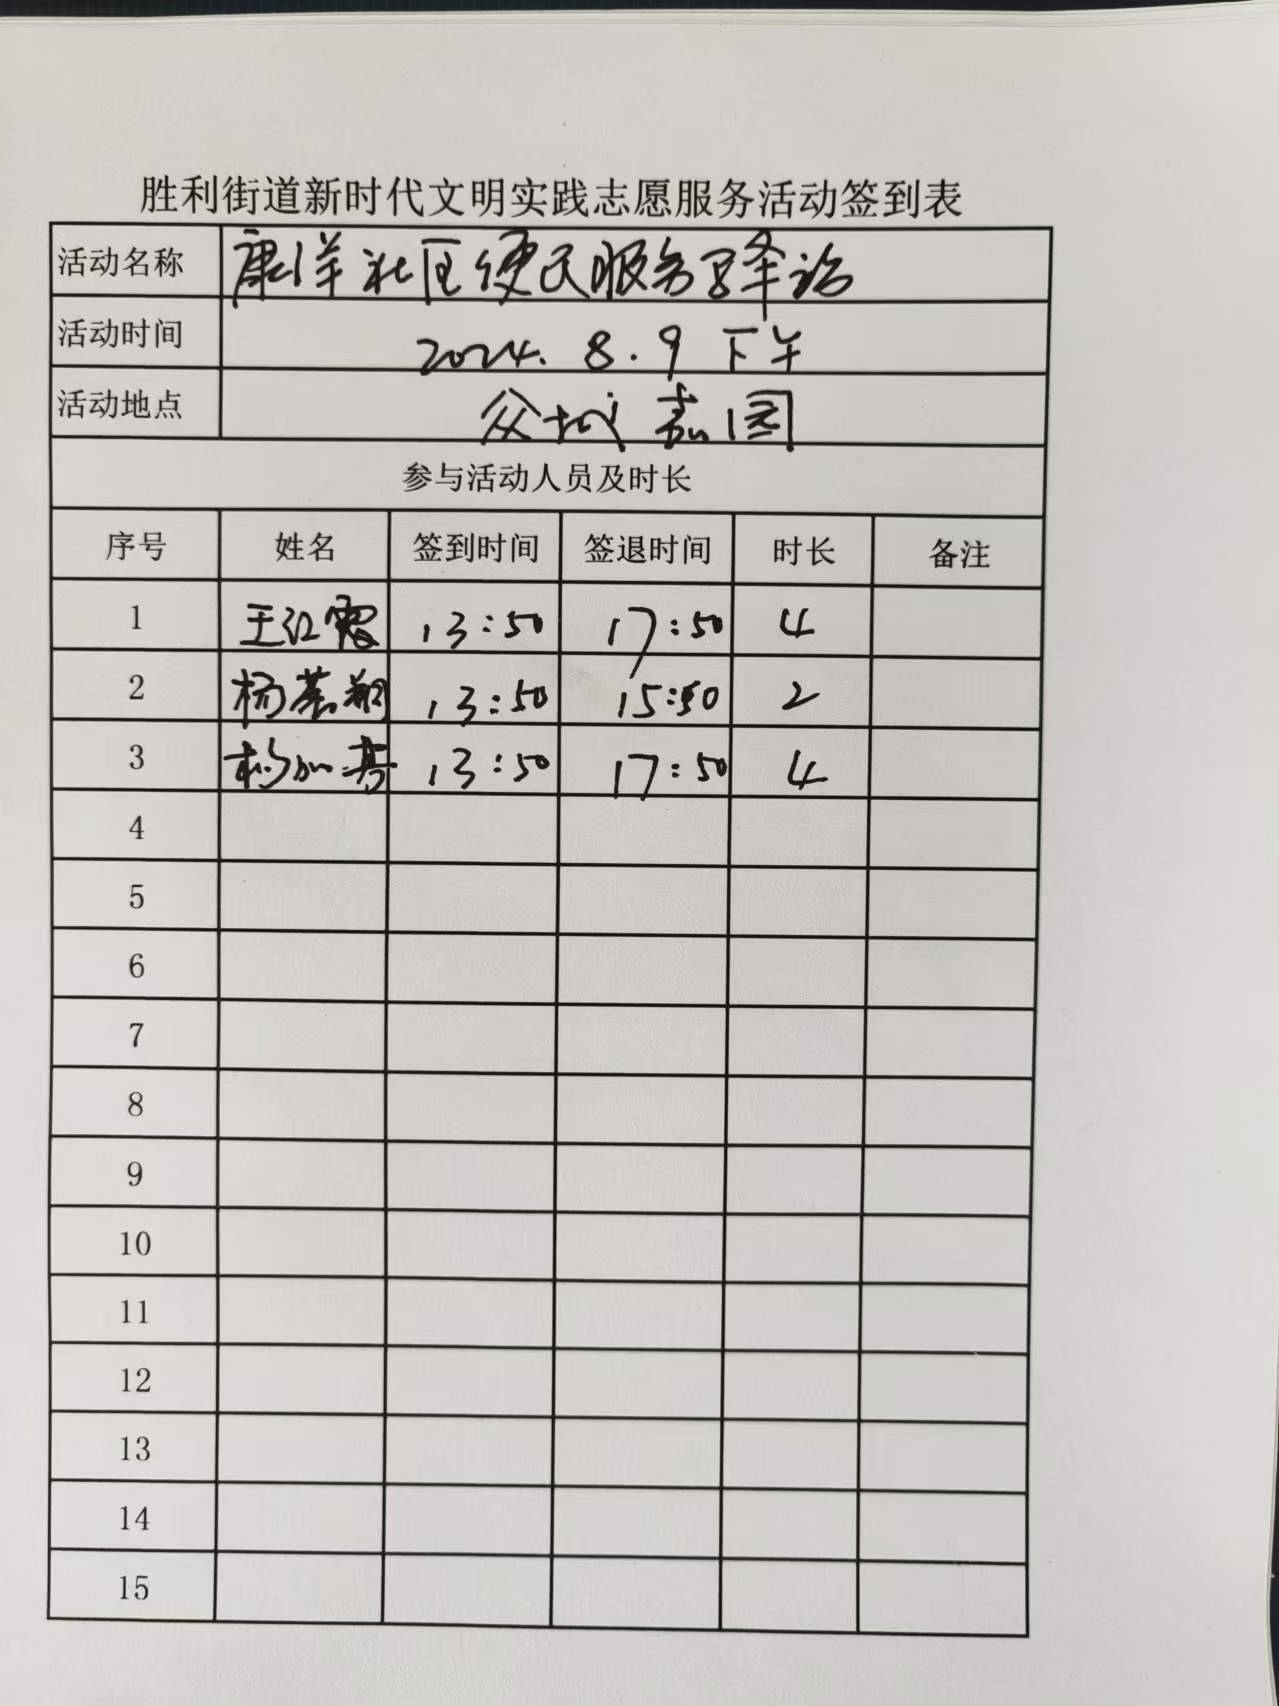 胜利街道新时代文明实践志愿服务活动签到表
活动名称 康洋社区便民服务驿站
活动时间 2024. 8. 9 下午
活动地点 众城嘉园
参与活动人员及时长
序号 姓名 签到时间 签退时间 时长 备注
1 王红霞 13:50 17:50 4
2 杨慕翔 13:50 15:50 2
3 杨 13:50 17:50 4
4
5
6
7
8
9
10
11
12
13
14
15